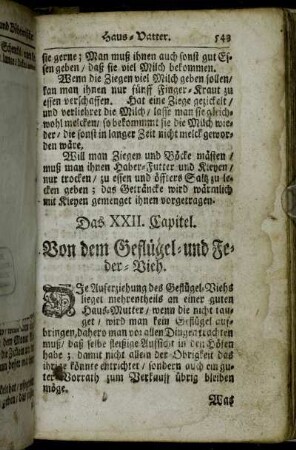 Haus-Vatter. 543
sie gerne; Man muß ihnen auch sonst gut Es-
sen geben / daß sie viel Milch bekommen.
Wenn die Ziegen viel Milch geben sollen/
kan man ihnen nur fünff Finger-Kraut zu
essen verschaffen. Hat eine Ziege gezickelt /
und verliehret die Milch / lasse man sie gleich-
wohl melcken / so bekommt sie die Milch wie-
der / die sonst in langer Zeit nicht melck gewor-
den wäre.
Will man Ziegen und Böcke mästen /
muß man ihnen Haber-Futter und Kleyen /
nur trocken / zu essen und öffters Saltz zu le-
cken geben; das Geträncke wird wärmlich
mit Kleyen gemenget ihnen vorgetragen.
Das XXII. Capitel.
Von dem Geflügel- und Fe-
der-Vieh.
Die Auferziehung des Geflügel-Viehs
lieget mehrentheils an einer guten
Haus-Mutter / wenn die nicht tau-
get / wird man kein Geflügel auf-
bringen, dahero man vor allen Dingen trachten
muß / daß selbe fleißige Aufsicht in den Höfen
habe; damit nicht allein der Obrigkeit das
ihrige könnte entrichtet / sondern auch ein gu-
ter Vorrath zum Verkauff übrig bleiben
möge.
Was